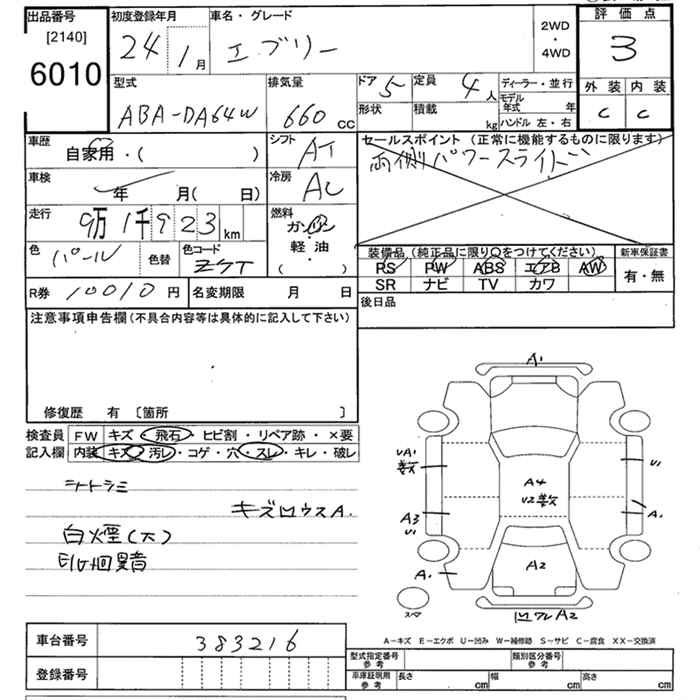 出品番号
[2140]
6010
初度登録年月
24 1月
車名・グレード
エブリー
2WD
・
4WD
評価点
3
外装 内装
C C
型式
ABA-DA64W
排気量
660 CC
ドア 5
形状
定員 4人
積載 kg
ディーラー・並行
モデル年式 年
ハンドル 左・右
車歴
自家用・( )
シフト
AT
セールスポイント (正常に機能するものに限ります)
両側パワースライド
車検
年 月( 日)
冷房
AC
走行
9万1千923km
燃料
ガソリン
・
軽油
・
( )
色 パール
色替
色コード
ZCT
装備品 (純正品に限り○をつけてください)
PS PW ABS エアB AW
SR ナビ TV カワ
新車保証書
有・無
R券 10010円
名変期限 月 日
後日品
注意事項申告欄(不具合内容等は具体的に記入して下さい)
修復歴 有 〔箇所 〕
検査員記入欄
FW キズ・飛石・ヒビ割・リペア跡・×要
内装 キズ・汚レ・コゲ・穴・スレ・キレ・破レ
シートシミ
キズ凹ウスA.
白煙(大)
A1
UA1
数
U1
A4
U2数
A3
U1
A1
A1
A2
スマ
凹ワレA2
A-キズ E-エクボ U-凹み W-補修跡 S-サビ C-腐食 XX-交換済
車台番号 383216
登録番号
型式指定番号 参考
類別区分番号 参考
車庫証明用 参考
長さ cm
幅 cm
高さ cm